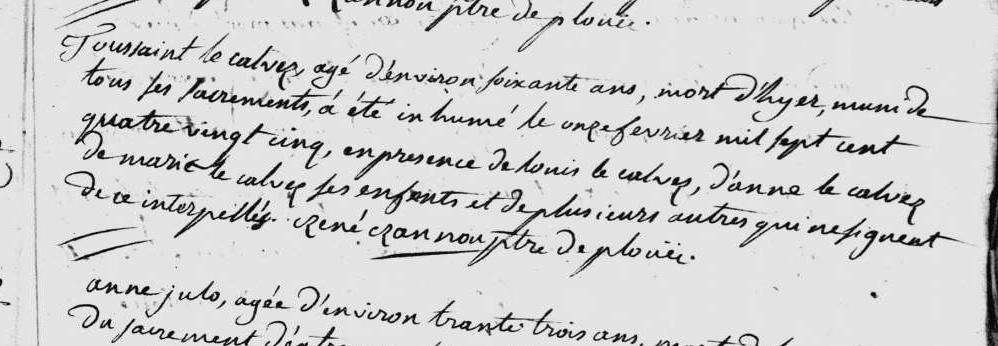 ptre de plouëc.
Toussaint le calvez, agé d'environ soixante ans, mort d'hyer, muni de
tous ses sacrements, a été inhumé le onze fevrier mil sept cent
quatre vingt cinq, en presence de louis le calvez, d'anne le calvez
de marie le calvez ses enfents et de plusieurs autres qui ne signent
de ce interpellés. ptre de plouëc.
anne julo, agée d'environ trante trois ans,
Du sacrement